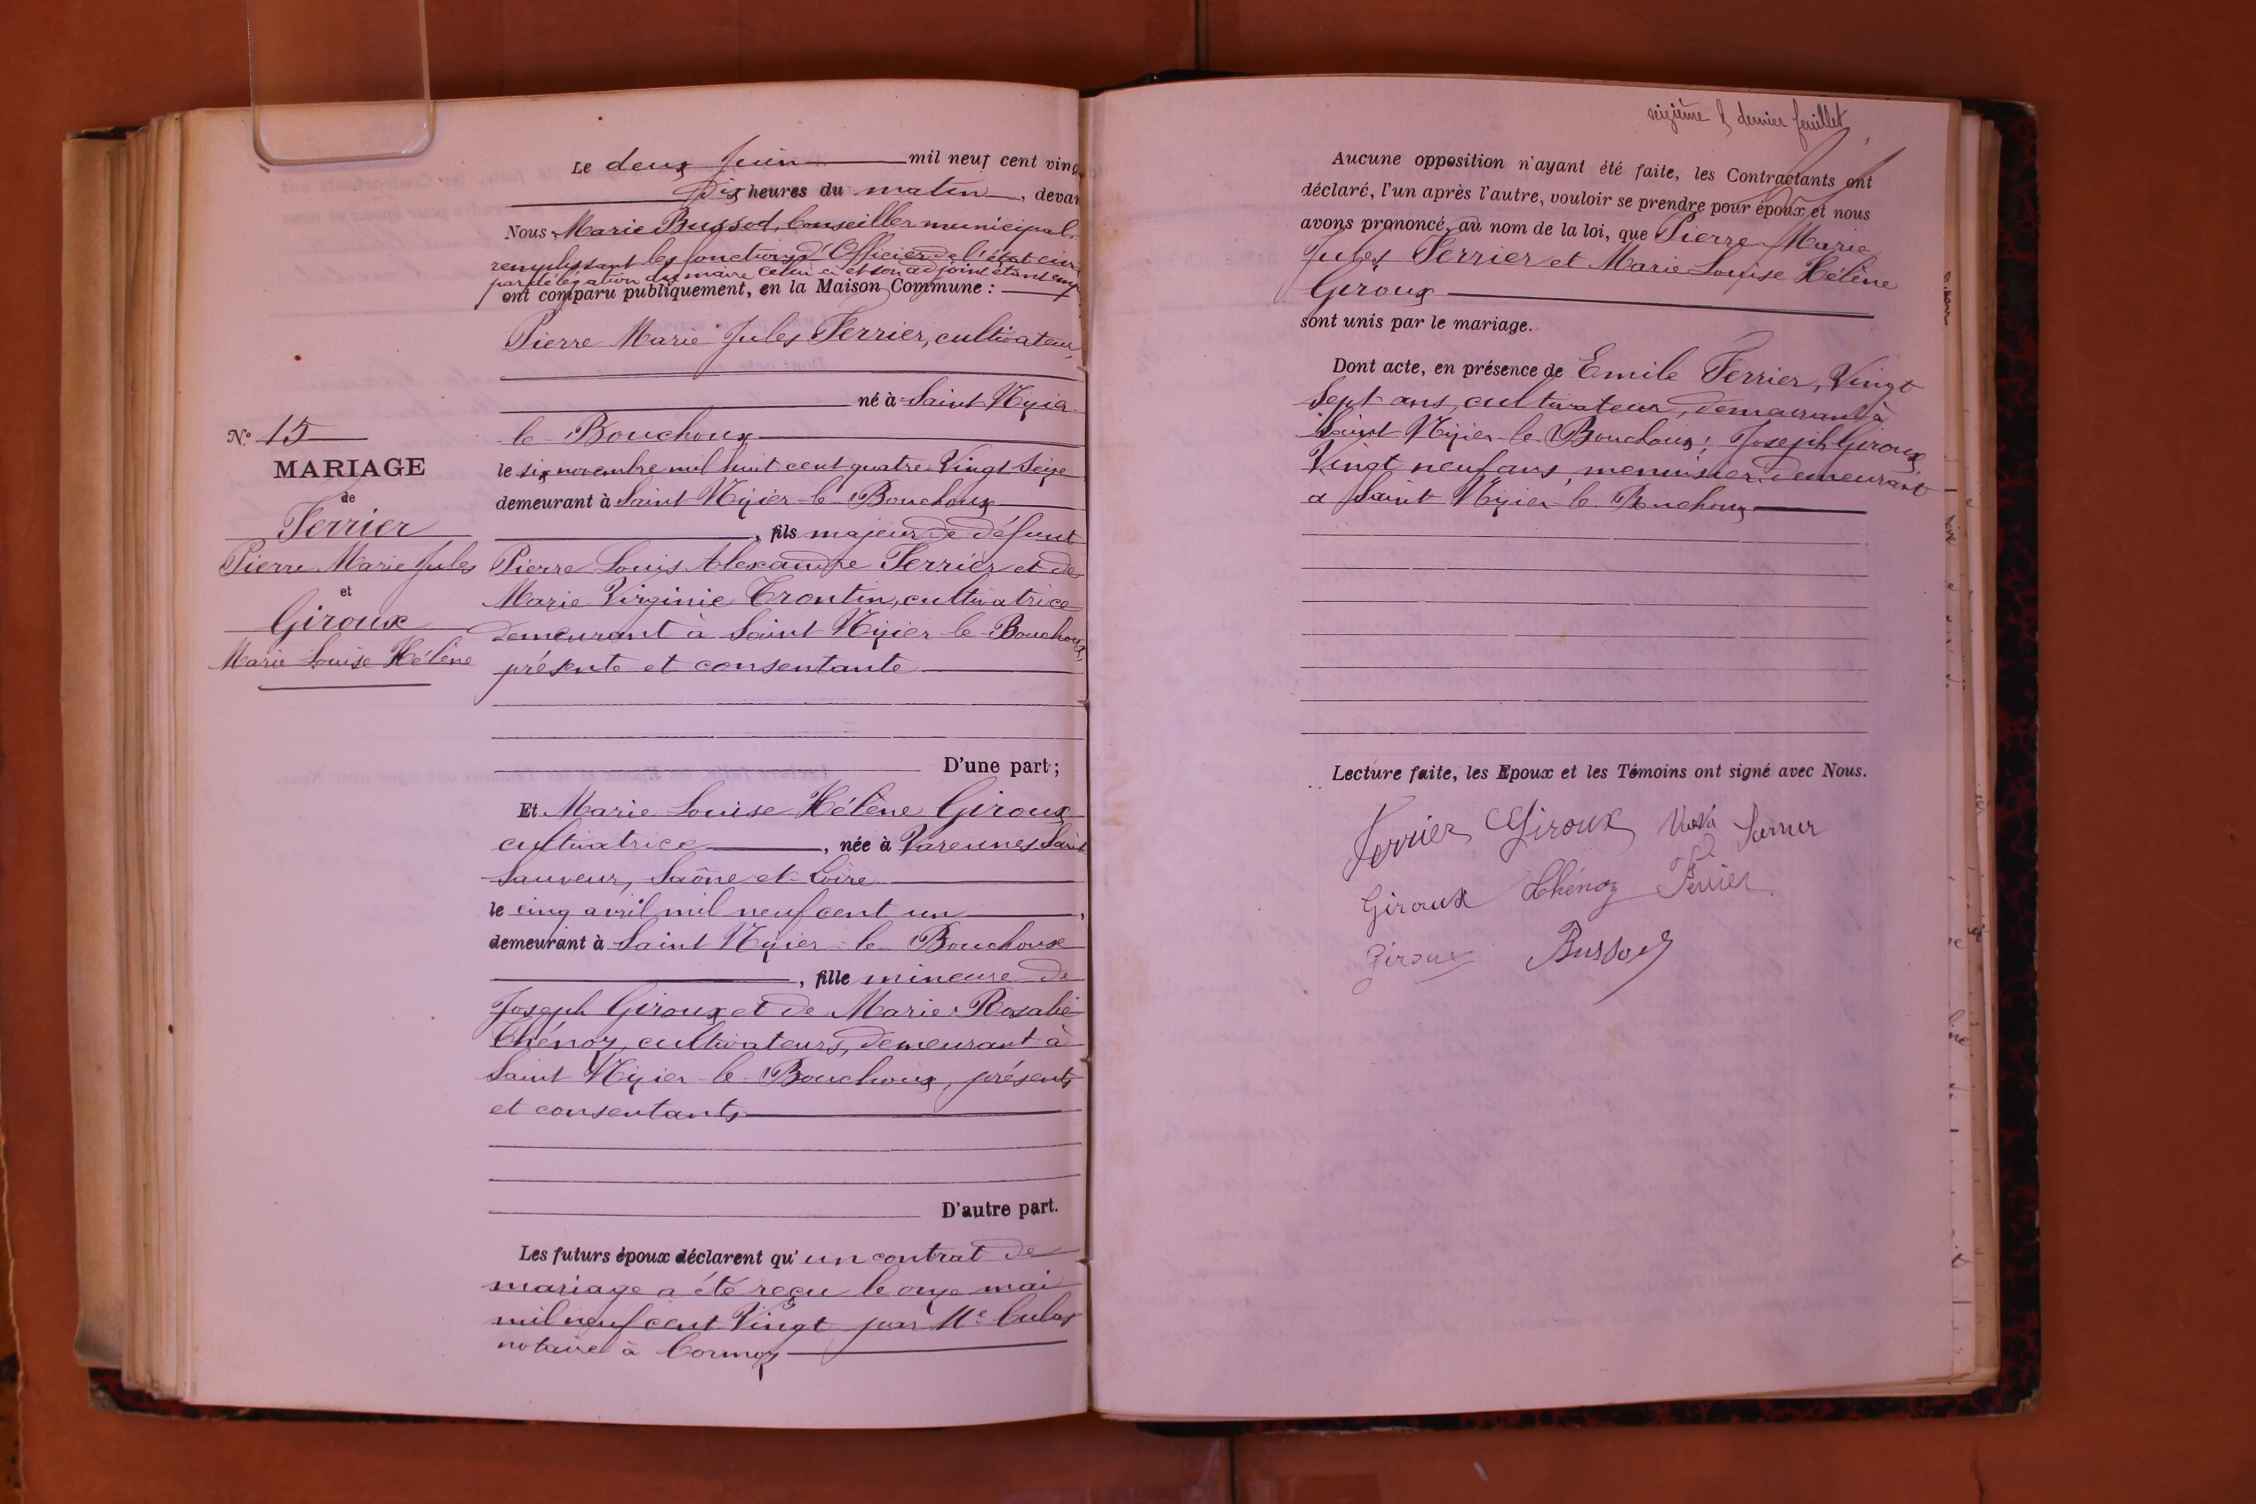 Le deux Juin mil neuf cent vingt
Dix heures du matin, devant
Nous Marie Bussod, Conseiller municipal
remplissant les fonctions d'Officier de l'état civil
par délégation du maire celui ci et son adjoint étant
ont comparu publiquement, en la Maison Commune :
Pierre Marie Jules Ferrier, cultivateur,
né à Saint Nizier
le Bouchoux
le six novembre mil huit cent quatre Vingt Seize
demeurant à Saint Nizier le Bouchoux
, fils majeur de défunt
Pierre Louis Alexandre Ferrier et de
Marie Virginie Trontin, cultivatrice
demeurant à Saint Nizier le Bouchoux,
présente et consentante
D'une part ;
N° 15
MARIAGE
de
Ferrier
Pierre Marie Jules
et
Giroux
Marie Louise Hélène
Et Marie Louise Hélène Giroux
cultivatrice, née à Varennes Saint
Sauveur, Saône et Loire
le cinq avril mil neuf cent un,
demeurant à Saint Nizier le Bouchoux
, fille mineure de
Joseph Giroux et de Marie Rosalie
Chénoz, cultivateurs, demeurant à
Saint Nizier le Bouchoux, présents
et consentants
D'autre part.
Les futurs époux déclarent qu'un contrat de
mariage a été reçu le onze mai
mil neuf cent Vingt par Me Culas
notaire à Cormoz
seizième & dernier feuillet
Aucune opposition n'ayant été faite, les Contractants ont
déclaré, l'un après l'autre, vouloir se prendre pour époux et nous
avons prononcé, au nom de la loi, que Pierre Marie
Jules Ferrier et Marie Louise Hélène
Giroux
sont unis par le mariage.
Dont acte, en présence de Emile Ferrier, Vingt
Sept ans, cultivateur, demeurant à
Saint Nizier le Bouchoux ; Joseph Giroux,
Vingt neuf ans, menuisier demeurant
à Saint Nizier le Bouchoux
Lecture faite, les Epoux et les Témoins ont signé avec Nous.
Ferrier Giroux
Giroux Chénoz Ferrier
Giroux Bussod